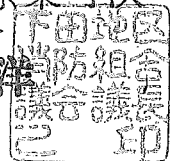 下田地区
消防組合
議会議長
之印